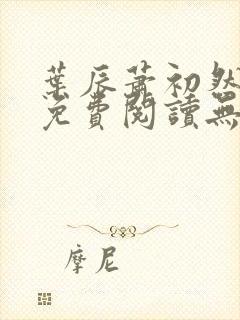 葉辰蕭初然
免費閱讀無
摩尼